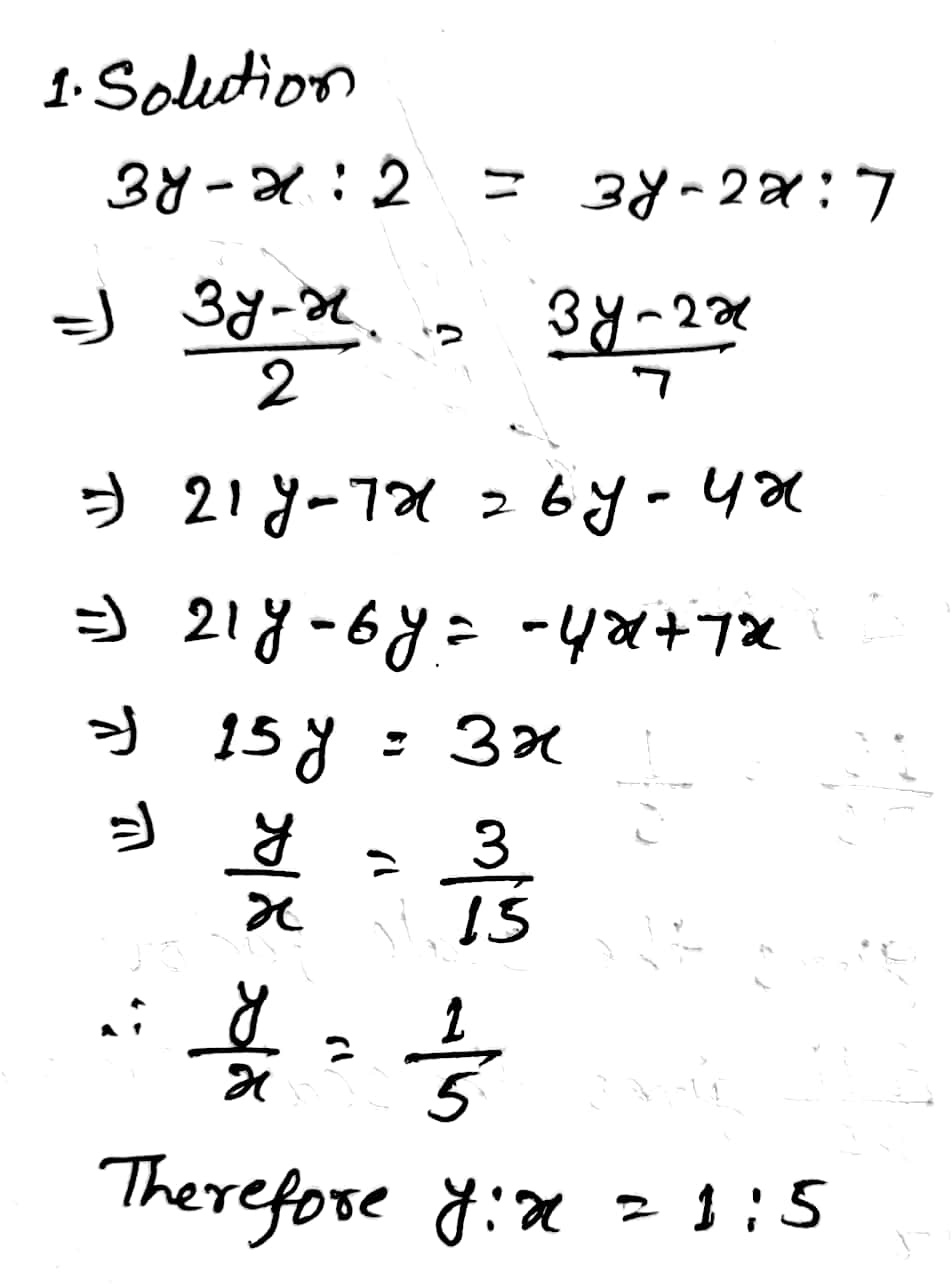 1. Solution
3y - x : 2 = 3y - 2x : 7
⇒ (3y - x)/2 = (3y - 2x)/7
⇒ 21y - 7x = 6y - 4x
⇒ 21y - 6y = -4x + 7x
⇒ 15y = 3x
⇒ y/x = 3/15
∴ y/x = 1/5
Therefore y : x = 1 : 5